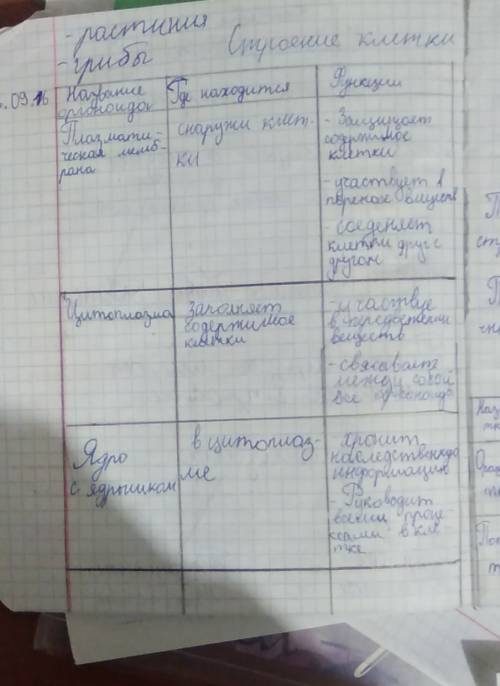 - растиния
- грибы
Строение клетки
.09.16
Название
органоидов
Где находится
Функции
Плазмати-
ческая мемб-
рана
снаружи клет-
ки
- Защищает
содержимое
клетки
- участвует в
переносе веществ
- соеденяет
клетки друг с
другом
Цитоплазма
заполняет
содержимое
клетки
- участвуе
в
веществ
- связывает
между собой
все органоиды
Ядро
с ядрышком
в цитоплаз-
ме
- хранит
наследственную
информацию
- Руководит
всеми проце
ссами в кле
тке